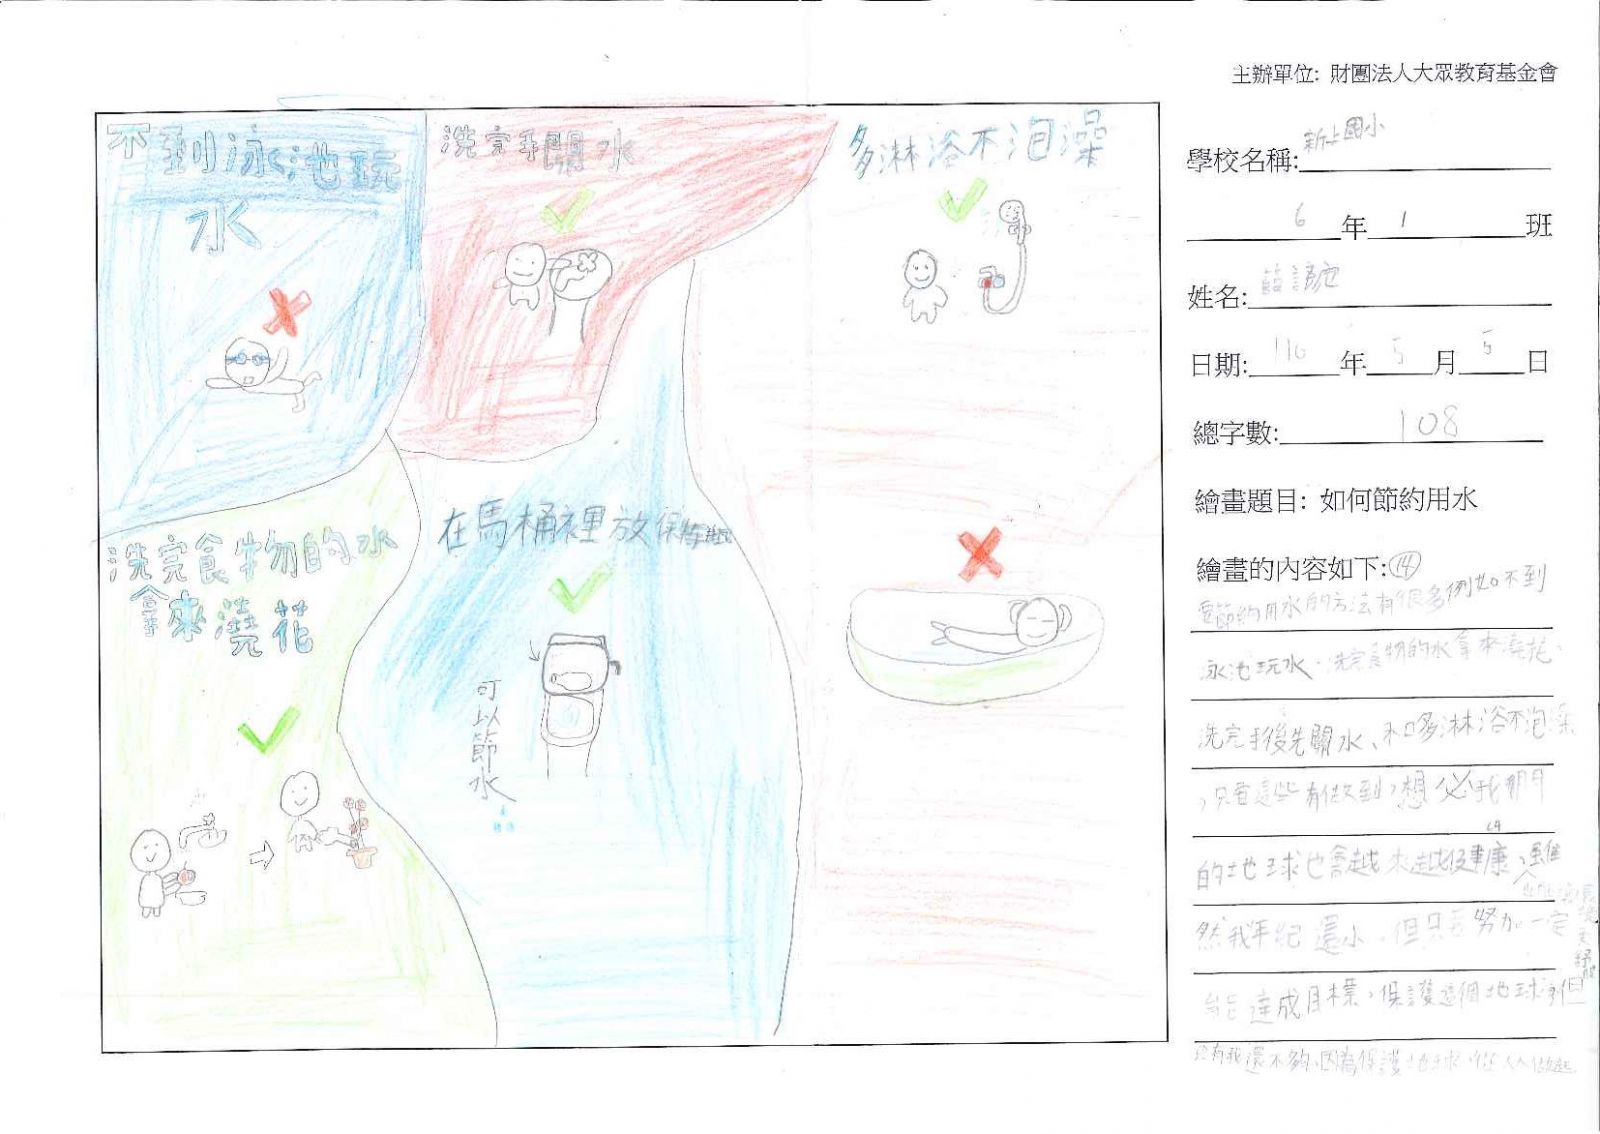 主辦單位: 財團法人大眾教育基金會
不到泳池玩
水
洗完手關水
多淋浴不泡澡
洗完食物的水
拿來澆花
在馬桶裡放保特瓶
可以節水
學校名稱:新上國小
6年1班
姓名:
日期:110年5月5日
總字數:108
繪畫題目: 如何節約用水
繪畫的內容如下:⑭
要節約用水的方法有很多例如不到
泳池玩水、洗完食物的水拿來澆花、
洗完手後先關水、和多淋浴不泡澡
,只要這些有做到,想必我們
的地球也會越來越健康,雖
然我年紀還小,但只要努力一定
能達成目標,保護這個地球,但
只有我還不夠,因為保護地球,從人人做起